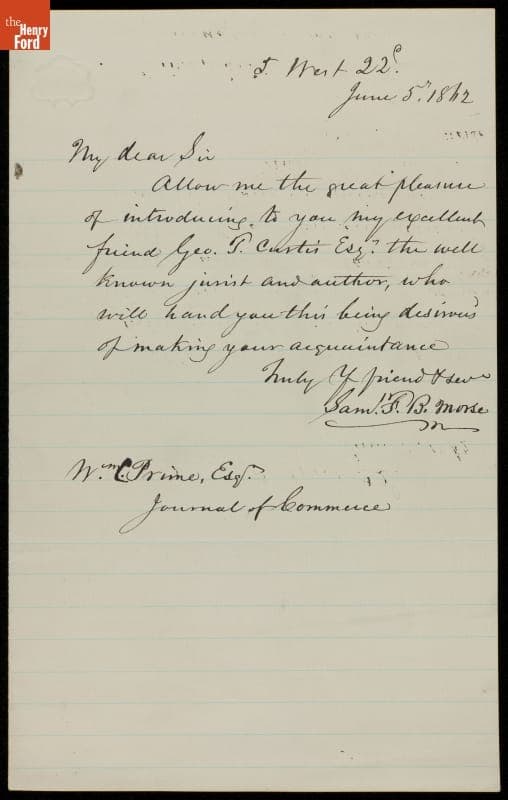 the
Henry
Ford
5 West 22d.
June 5th. 1862
My dear Sir
Allow me the great pleasure
of introducing to you my excellent
friend Geo. T. Curtis Esqr. the well
known jurist and author, who
will hand you this being desirous
of making your acquaintance
Truly Yr friend & servt
Saml. F. B. Morse
Wm. C. Prime, Esqr.
Journal of Commerce